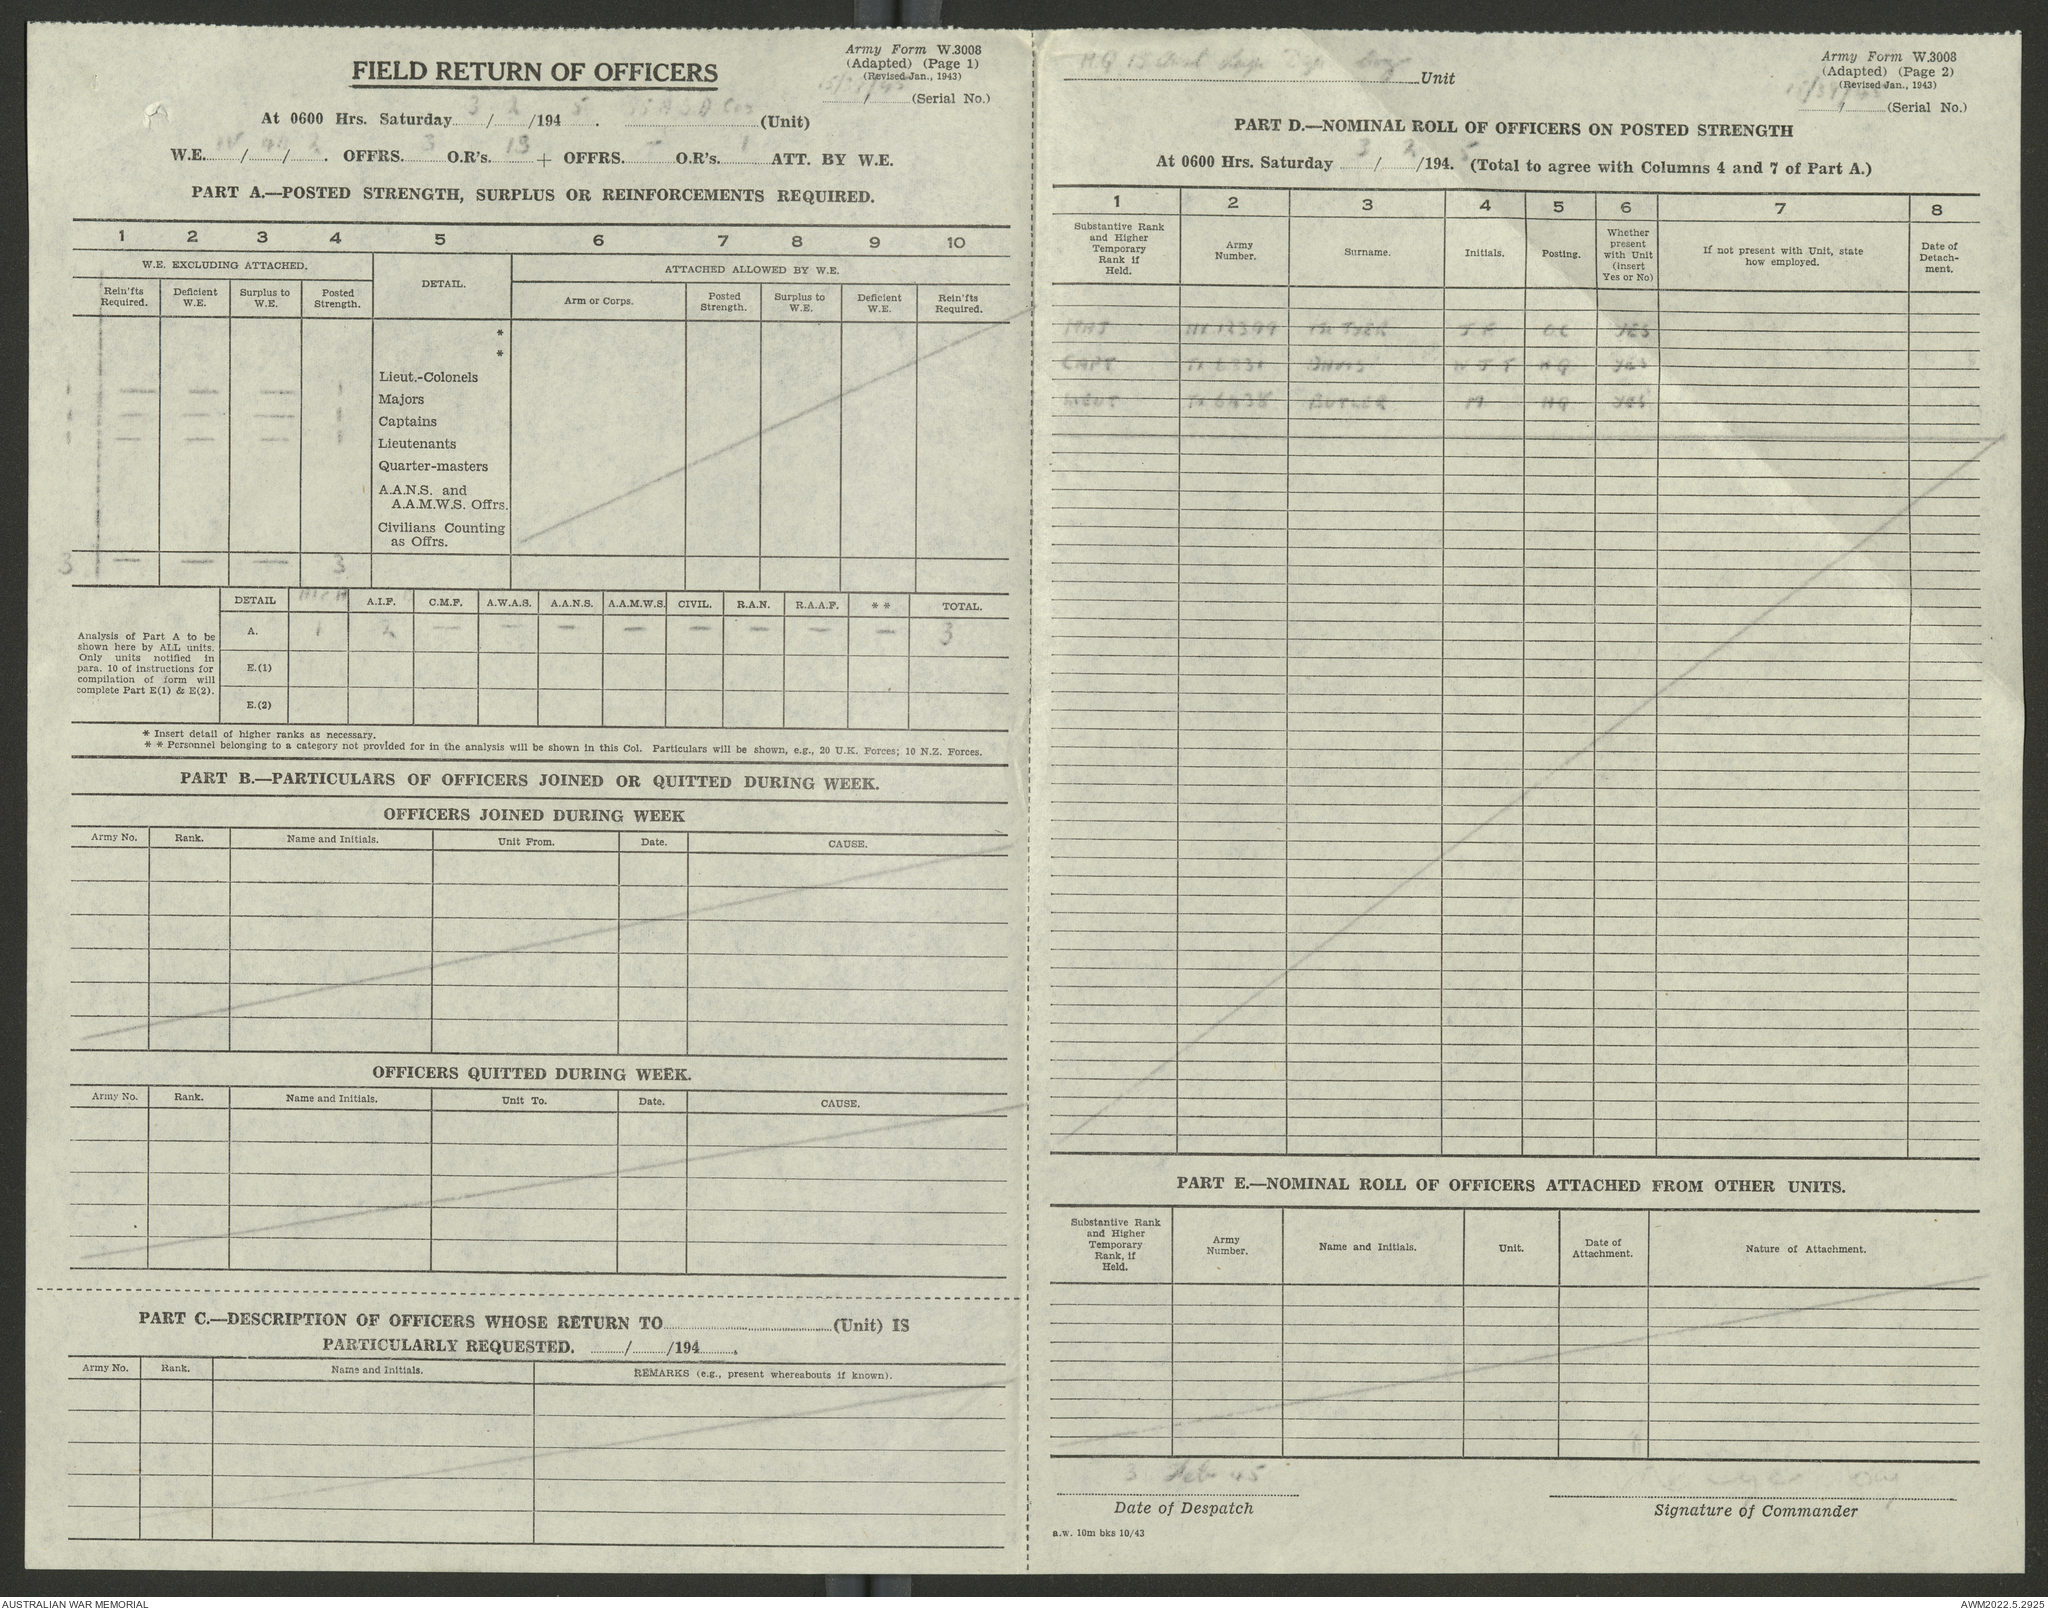 Army Form W.3008
(Adapted) (Page 1)
(Revised Jan., 1943)
FIELD RETURN OF OFFICERS
(Serial No.)
At 0600 Hrs. Saturday 3 / 2 /194 5. (Unit)
W.E. / / . OFFRS. 3 O.R's. 13 + OFFRS. - O.R's. 1 ATT. BY W.E.
PART A.—POSTED STRENGTH, SURPLUS OR REINFORCEMENTS REQUIRED.
1 2 3 4 5 6 7 8 9 10
W.E. EXCLUDING ATTACHED. DETAIL. ATTACHED ALLOWED BY W.E.
Rein'fts Required. Deficient W.E. Surplus to W.E. Posted Strength. Arm or Corps. Posted Strength. Surplus to W.E. Deficient W.E. Rein'fts Required.
*
*
Lieut.-Colonels
1 — — — 1 Majors
1 — — — 1 Captains
1 — — — 1 Lieutenants
Quarter-masters
A.A.N.S. and
A.A.M.W.S. Offrs.
Civilians Counting
as Offrs.
3 — — — 3
DETAIL A.I.F. C.M.F. A.W.A.S. A.A.N.S. A.A.M.W.S. CIVIL. R.A.N. R.A.A.F. * * TOTAL.
A. 1 2 — — — — — — — — 3
E.(1)
E.(2)
Analysis of Part A to be
shown here by ALL units.
Only units notified in
para. 10 of instructions for
compilation of form will
complete Part E(1) & E(2).
* Insert detail of higher ranks as necessary.
* * Personnel belonging to a category not provided for in the analysis will be shown in this Col. Particulars will be shown, e.g., 20 U.K. Forces; 10 N.Z. Forces.
PART B.—PARTICULARS OF OFFICERS JOINED OR QUITTED DURING WEEK.
OFFICERS JOINED DURING WEEK
Army No. Rank. Name and Initials. Unit From. Date. CAUSE.
OFFICERS QUITTED DURING WEEK.
Army No. Rank. Name and Initials. Unit To. Date. CAUSE.
PART C.—DESCRIPTION OF OFFICERS WHOSE RETURN TO (Unit) IS
PARTICULARLY REQUESTED. / /194 .
Army No. Rank. Name and Initials. REMARKS (e.g., present whereabouts if known).
Army Form W.3008
(Adapted) (Page 2)
(Revised Jan., 1943)
H.Q. 15 Unit
(Serial No.)
PART D.—NOMINAL ROLL OF OFFICERS ON POSTED STRENGTH
At 0600 Hrs. Saturday 3 / 2 /194 5. (Total to agree with Columns 4 and 7 of Part A.)
1 2 3 4 5 6 7 8
Substantive Rank and Higher Temporary Rank if Held. Army Number. Surname. Initials. Posting. Whether present with Unit (insert Yes or No) If not present with Unit, state how employed. Date of Detach-ment.
MAJ OC YES
CAPT W J T HQ YES
LIEUT BUTLER M HQ YES
PART E.—NOMINAL ROLL OF OFFICERS ATTACHED FROM OTHER UNITS.
Substantive Rank and Higher Temporary Rank, if Held. Army Number. Name and Initials. Unit. Date of Attachment. Nature of Attachment.
3 Feb 45
Date of Despatch
Signature of Commander
a.w. 10m bks 10/43
AUSTRALIAN WAR MEMORIAL
AWM2022.5.2925